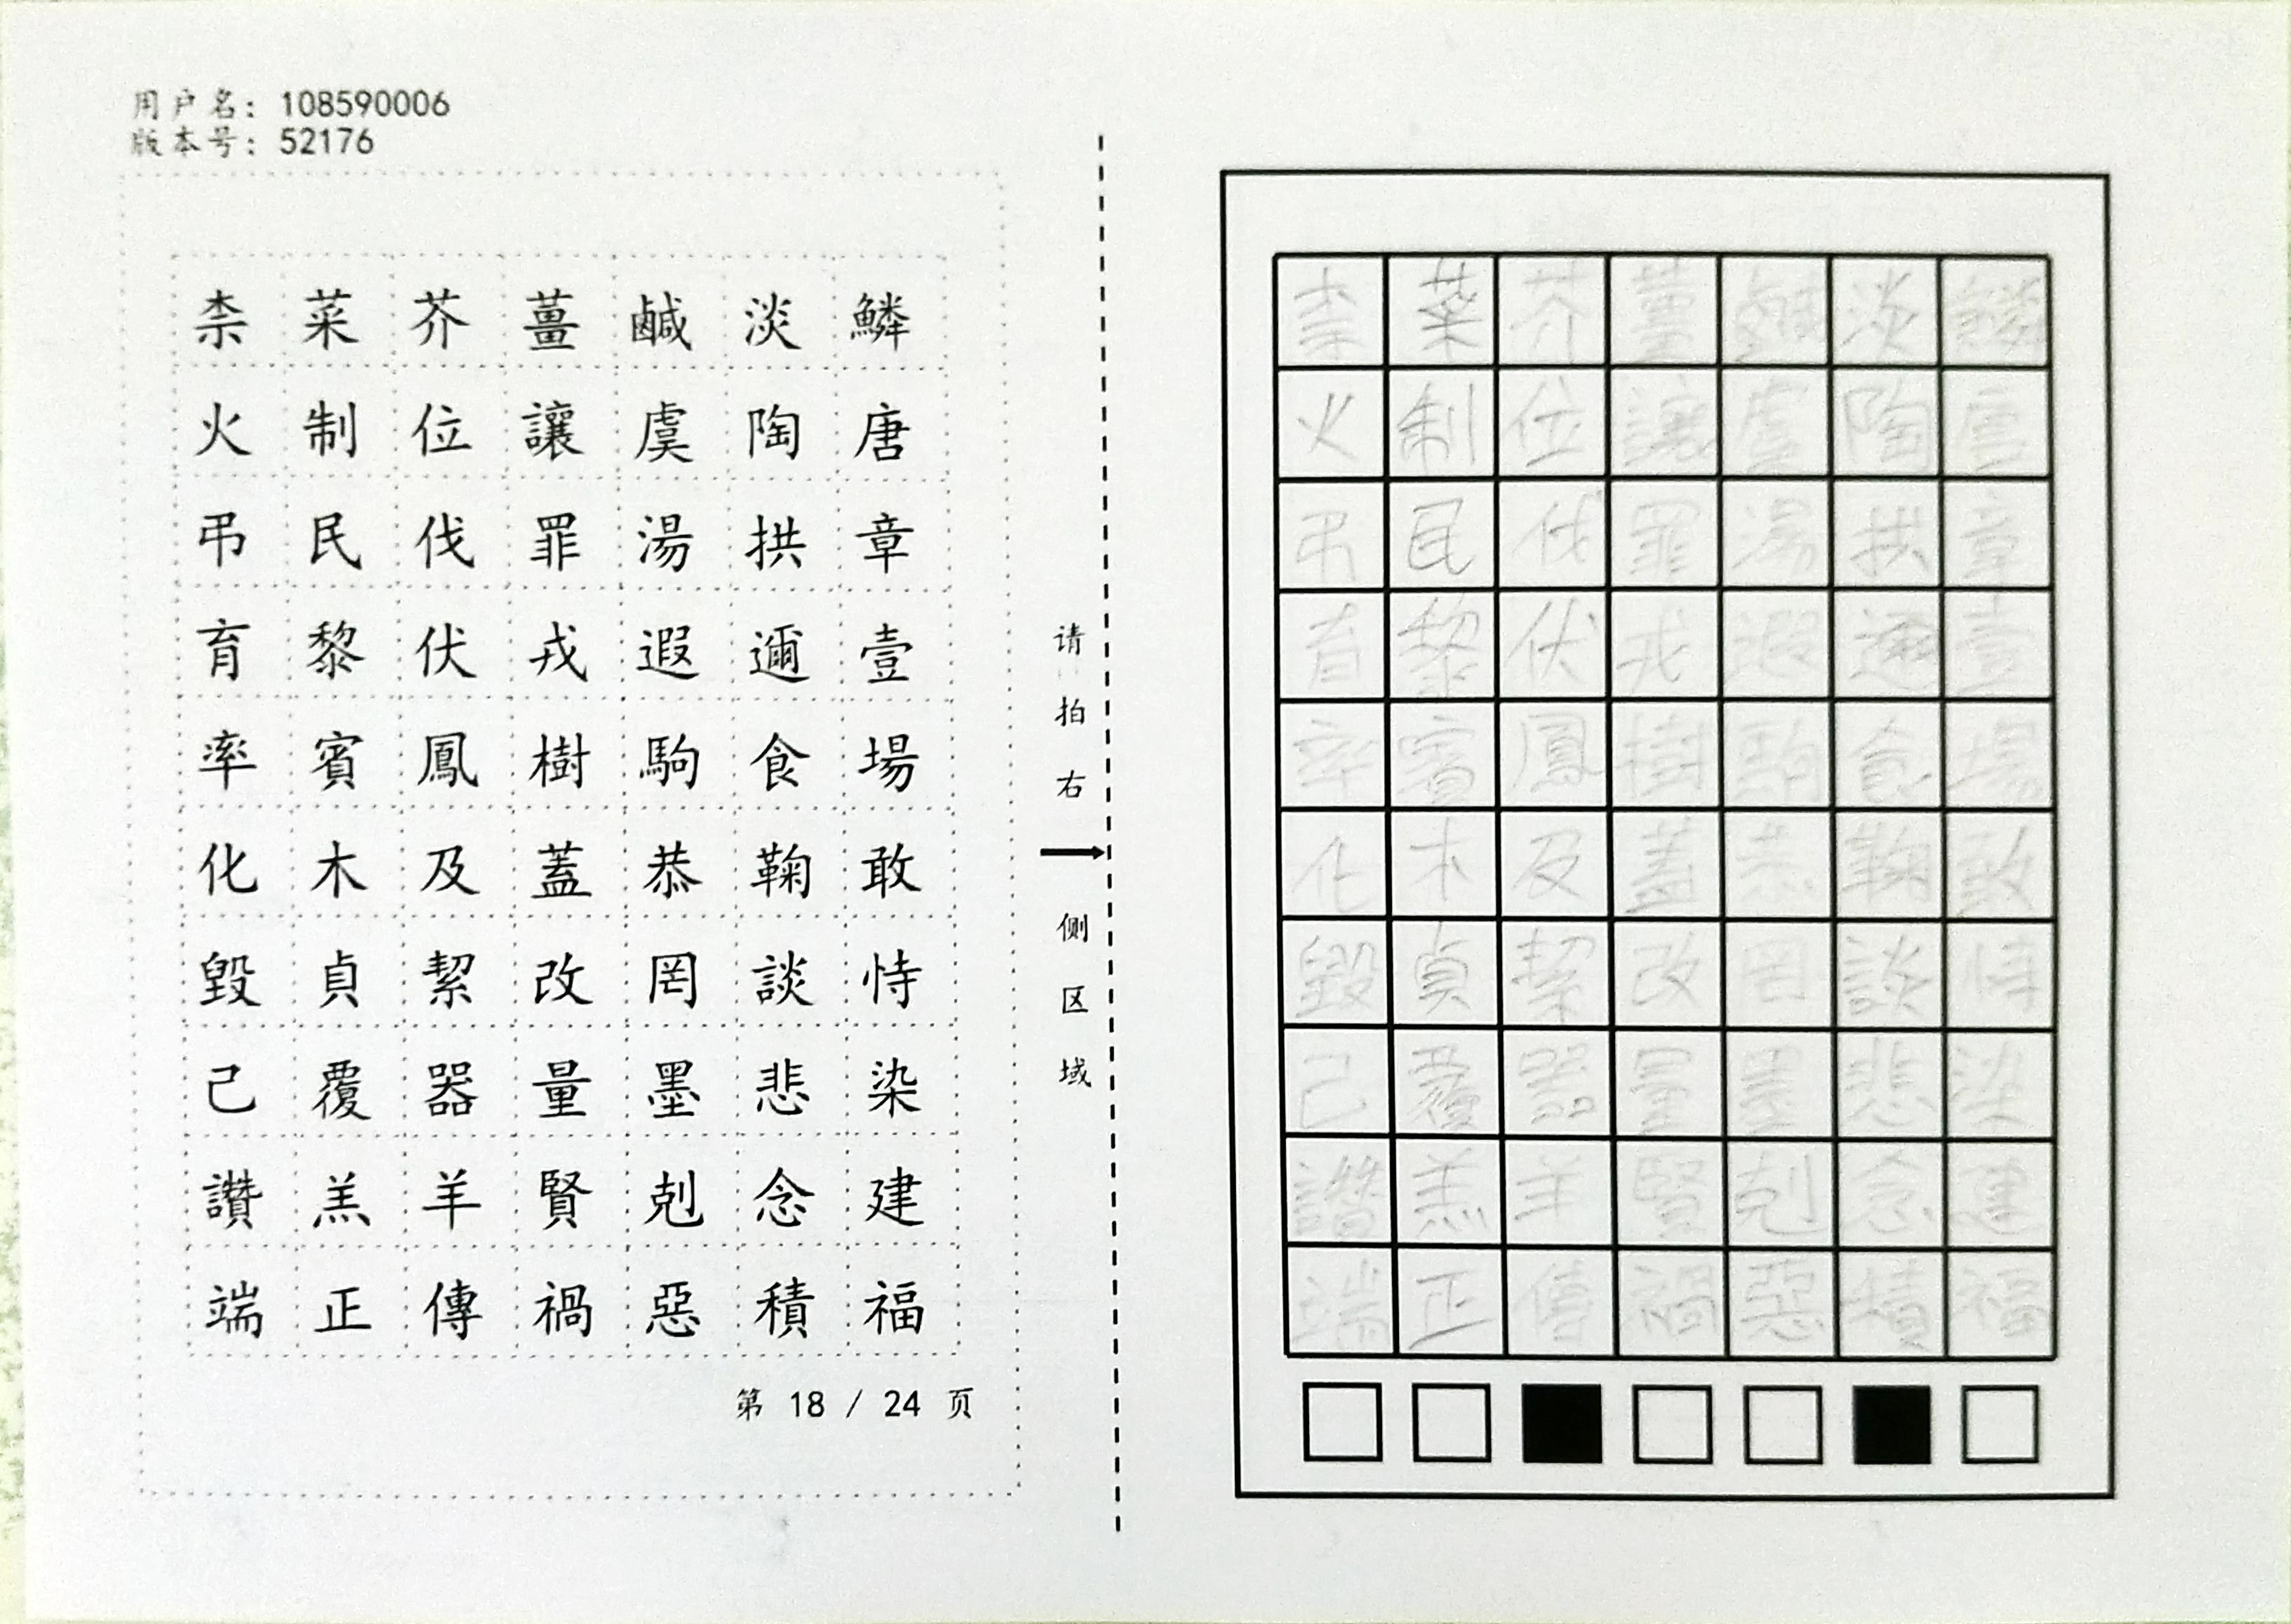 用户名: 108590006
版本号: 52176
柰菜芥薑鹹淡鱗
火制位讓虞陶唐
弔民伐罪湯拱章
育黎伏戎遐邇壹
率賓鳳樹駒食場
化木及蓋恭鞠敢
毀貞絜改罔談恃
己覆器量墨悲染
讚羔羊賢剋念建
端正傳禍惡積福
第 18 / 24 页
请拍右侧区域
柰菜芥薑鹹淡鱗
火制位讓虞陶唐
弔民伐罪湯拱章
育黎伏戎遐邇壹
率賓鳳樹駒食場
化木及蓋恭鞠敢
毀貞絜改罔談恃
己覆器量墨悲染
讚羔羊賢剋念建
端正傳禍惡積福